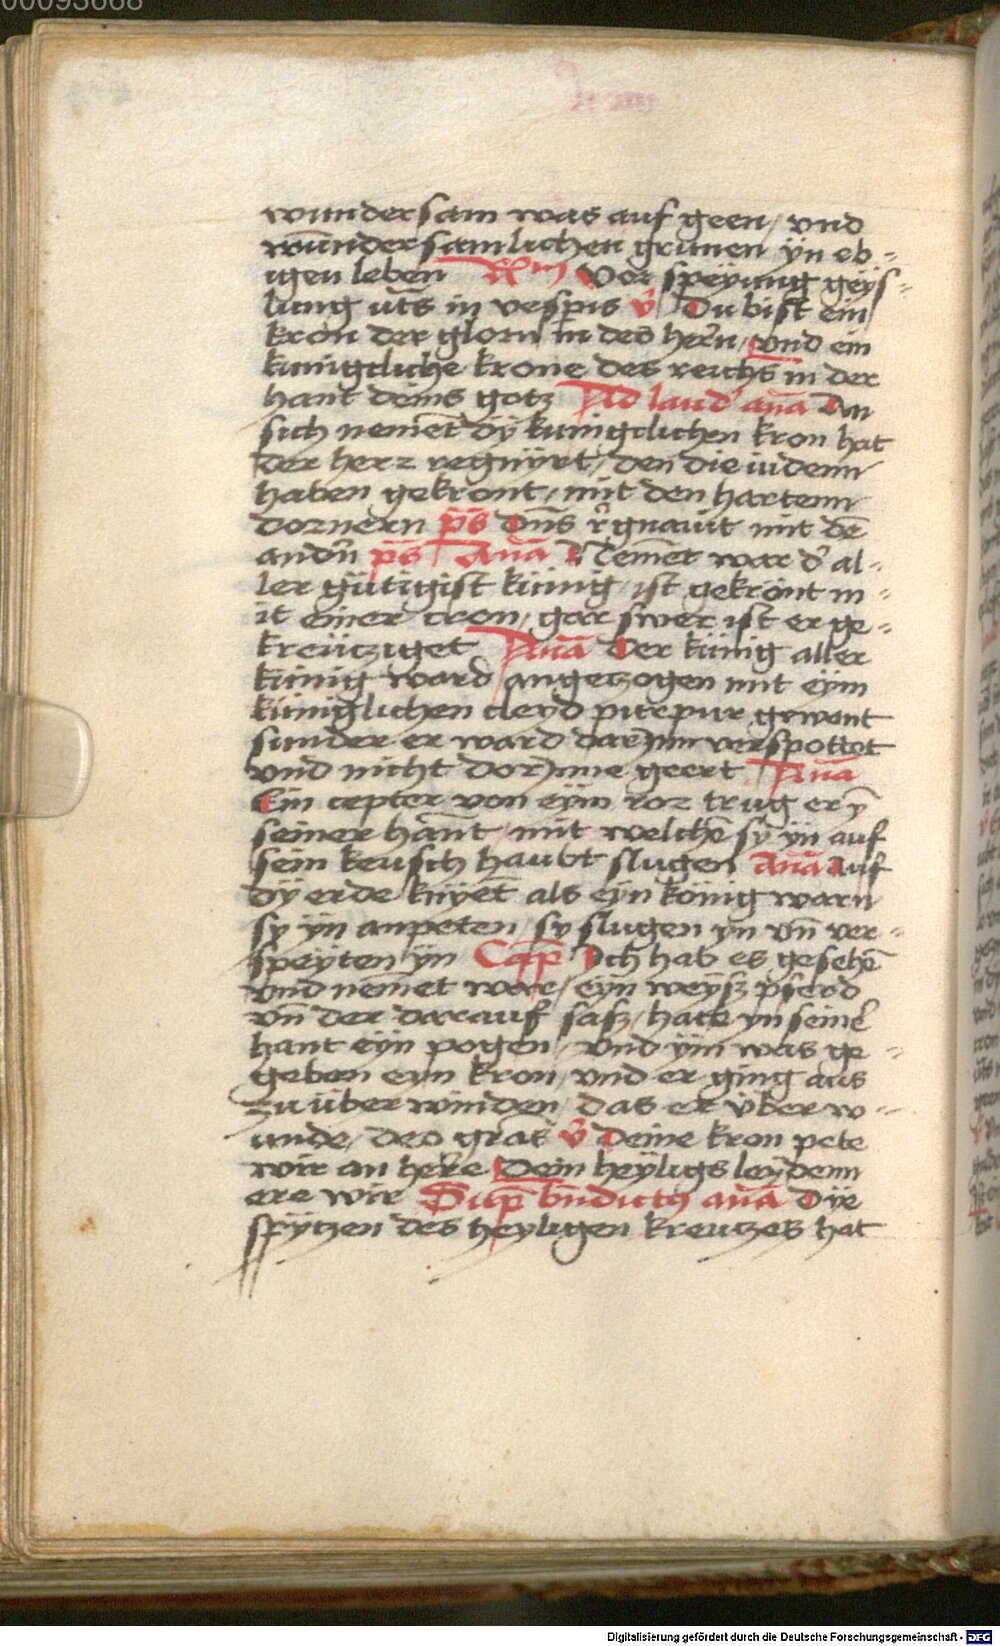 00093668
wundersam was auf geen / vnd
wūndersamlichen grunen ÿn eb-
igen leben R̄m Vor speyung geÿs-
lung uts in vesp̄is v̄ Du bist ein
kron der glorn in des hern / vnd ein
kunigcliche krone des reichs in der
hant deins gotz Ad laud' an̄a An
sich nemet dÿ kunigclichen kron hat
der herz regnirt / den die iudenn
haben gekront / mit den hartenn
dornern p̄s Dn̄s rgnauit mit dē
andn̄ p̄s An̄a Nemet war d' al-
ler gütigist künig / ist gekrönt m-
it einer cron / gar swer ist er ge-
kreücziget An̄a Der künig aller
künig ward angetzogen mit eÿm
küniglichen cleyd purpur gewant
sunder er ward darynn verspottet
vnd nicht dorynne geert An̄a
Ein cepter von eÿm ror trug er ȳ
seiner hānt / mit welchē sÿ ÿn auf
sein keusch haubt slugen An̄a Auf
dÿ erde knÿet als eÿn könig warn
sy ÿn anpeten / sy slugen yn vn̄ ver-
speÿten ÿn Cap̄ Ich hab es gesehē
vnd nemet war / eÿn weÿsz pferd
vn̄ der darauf sasz / hate yn seiner
hant eÿn pogen / vnd ÿm was ge-
geben eyn kron / vnd er ging aus
zu überwinden / das er überw-
unde / deo gras v̄ Deine kron pete
wir an herre Dein heÿligs leydenn
ere wir Sup̄ bn̄dictus an̄a Dÿe
spÿtzen des heyligen kreutzes hat
Digitalisierung gefördert durch die Deutsche Forschungsgemeinschaft - DFG